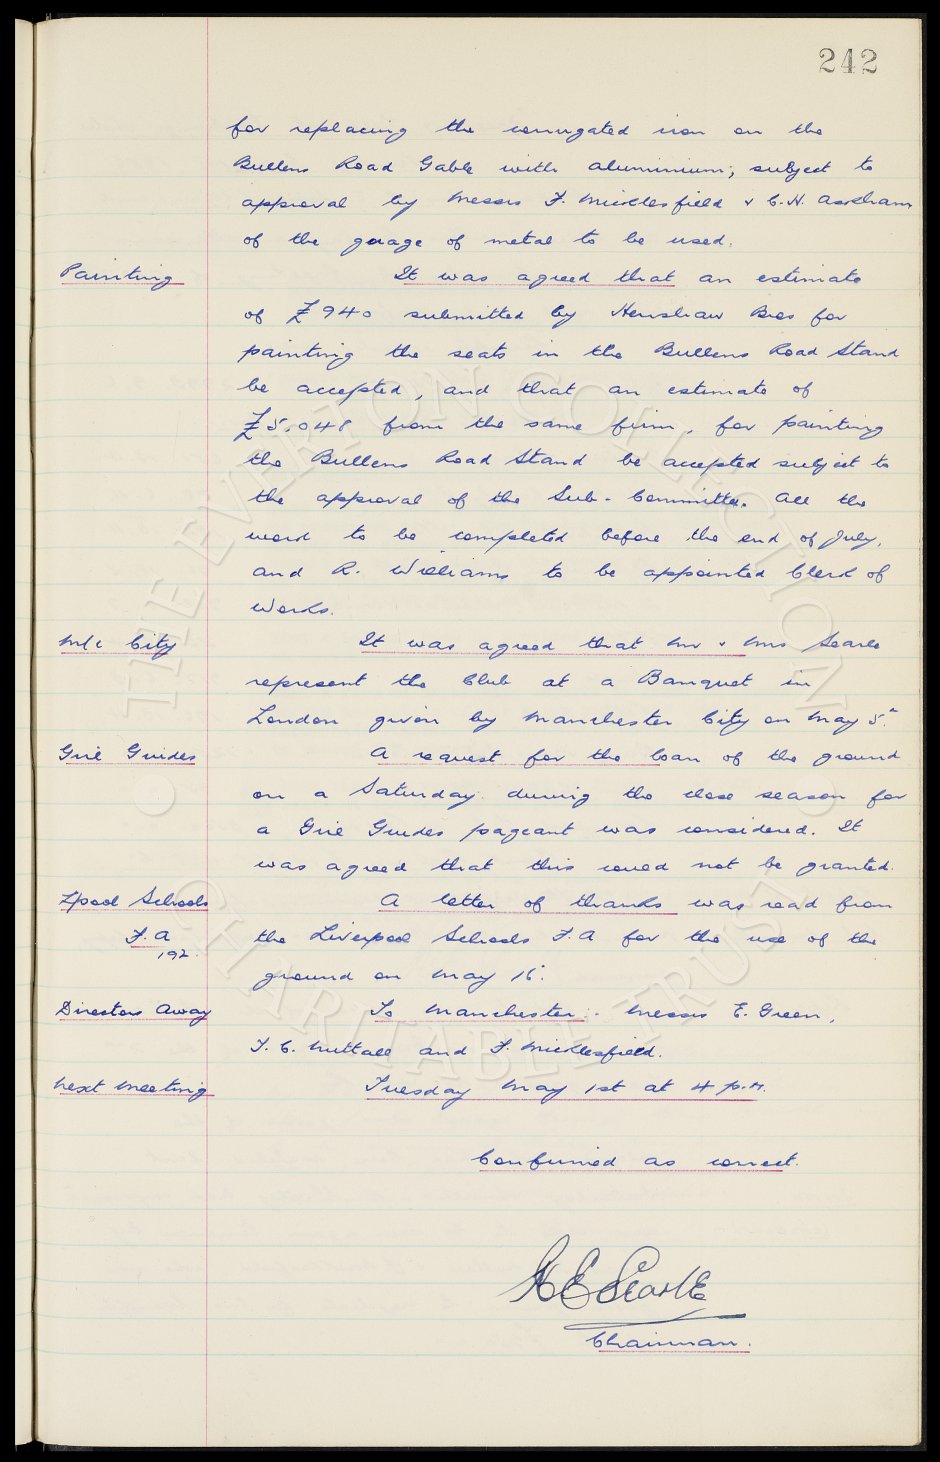 242
for replacing the corrugated iron on the
Bullens Road Gable with aluminium; subject to
approval by Messrs F. Micklesfield & C.H. Askham
of the guage of metal to be used.
Painting It was agreed that an estimate
of £940 submitted by Henshaw Bros for
painting the seats in the Bullens Road Stand
be accepted, and that an estimate of
£5,048 from the same firm, for painting
the Bullens Road Stand be accepted subject to
the approval of the Sub-Committee. All the
work to be completed before the end of July,
and R. Williams to be appointed Clerk of
Works.
M/c City It was agreed that Mr & Mrs Searle
represent the Club at a Banquet in
London given by Manchester City on May 5th.
Girl Guides A request for the loan of the ground
on a Saturday during the close season for
a Girl Guides pageant was considered. It
was agreed that this could not be granted.
L'pool Schools A letter of thanks was read from
F.A the Liverpool Schools F.A for the use of the
192.
ground on May 15.
Directors Away To Manchester:- Messrs E. Green,
T.C. Nuttall and F. Micklesfield.
Next Meeting Tuesday May 1st at 4 p.m.
Confirmed as correct.
H E Searle
Chairman.
• THE EVERTON COLLECTION •
CHARITABLE TRUST